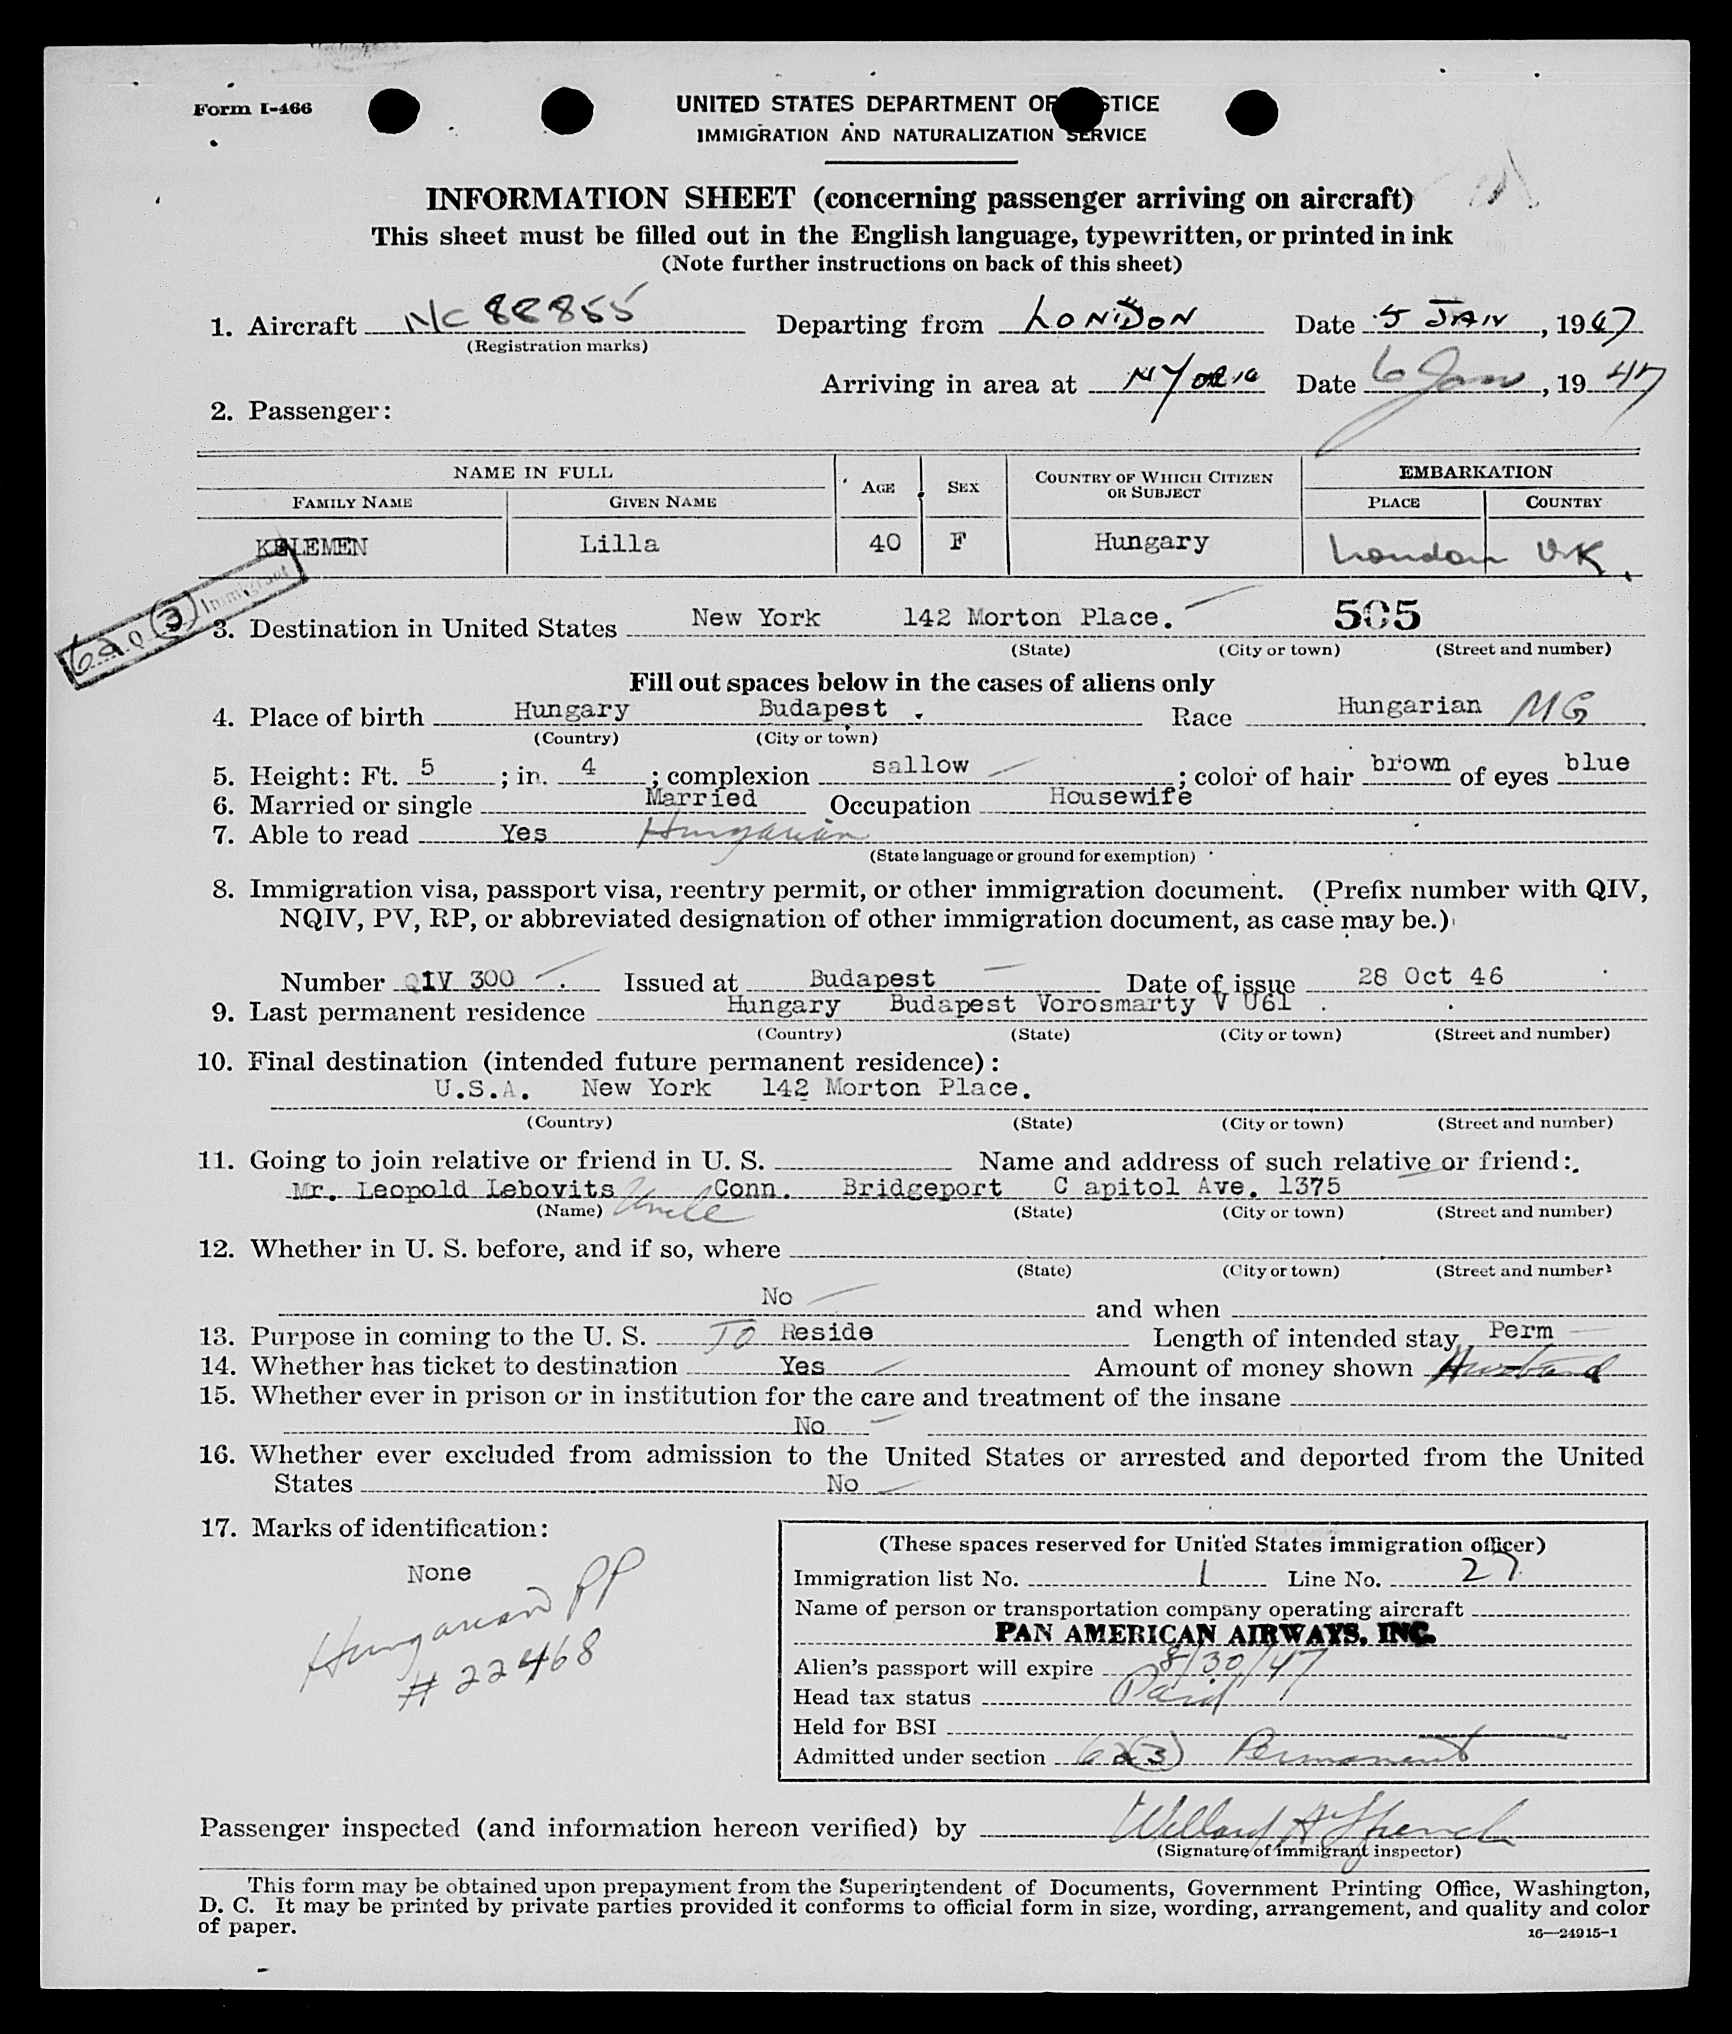 Form I-466
UNITED STATES DEPARTMENT OF JUSTICE
IMMIGRATION AND NATURALIZATION SERVICE
INFORMATION SHEET (concerning passenger arriving on aircraft)
This sheet must be filled out in the English language, typewritten, or printed in ink
(Note further instructions on back of this sheet)
1. Aircraft NC 88855 Departing from LONDON Date 5 JAN, 1947
(Registration marks)
Arriving in area at NYORK Date 6 Jan, 1947
2. Passenger:
NAME IN FULL AGE SEX COUNTRY OF WHICH CITIZEN OR SUBJECT EMBARKATION
FAMILY NAME GIVEN NAME PLACE COUNTRY
KELEMEN Lilla 40 F Hungary London U.K.
6a(3) Immigrant
3. Destination in United States New York 142 Morton Place. 505
(State) (City or town) (Street and number)
Fill out spaces below in the cases of aliens only
4. Place of birth Hungary Budapest . Race Hungarian MG
(Country) (City or town)
5. Height: Ft. 5 ; in. 4 ; complexion sallow ; color of hair brown of eyes blue
6. Married or single Married Occupation Housewife
7. Able to read Yes Hungarian
(State language or ground for exemption)
8. Immigration visa, passport visa, reentry permit, or other immigration document. (Prefix number with QIV,
NQIV, PV, RP, or abbreviated designation of other immigration document, as case may be.)
Number QIV 300 Issued at Budapest Date of issue 28 Oct 46
9. Last permanent residence Hungary Budapest Vorosmarty V U61
(Country) (State) (City or town) (Street and number)
10. Final destination (intended future permanent residence):
U.S.A. New York 142 Morton Place.
(Country) (State) (City or town) (Street and number)
11. Going to join relative or friend in U. S. Name and address of such relative or friend:
Mr. Leopold Lebovits Uncle Conn. Bridgeport C apitol Ave. 1375
(Name) (State) (City or town) (Street and number)
12. Whether in U. S. before, and if so, where
(State) (City or town) (Street and number)
No and when
13. Purpose in coming to the U. S. To Reside Length of intended stay Perm
14. Whether has ticket to destination Yes Amount of money shown Husband
15. Whether ever in prison or in institution for the care and treatment of the insane
No
16. Whether ever excluded from admission to the United States or arrested and deported from the United
States No
17. Marks of identification:
None
Hungarian PP
# 22468
(These spaces reserved for United States immigration officer)
Immigration list No. 1 Line No. 27
Name of person or transportation company operating aircraft
PAN AMERICAN AIRWAYS, INC.
Alien's passport will expire 8/30/47
Head tax status Paid
Held for BSI
Admitted under section 6a(3) Permanent
Passenger inspected (and information hereon verified) by Willard A French
(Signature of immigrant inspector)
This form may be obtained upon prepayment from the Superintendent of Documents, Government Printing Office, Washington,
D. C. It may be printed by private parties provided it conforms to official form in size, wording, arrangement, and quality and color
of paper.
16—24915-1